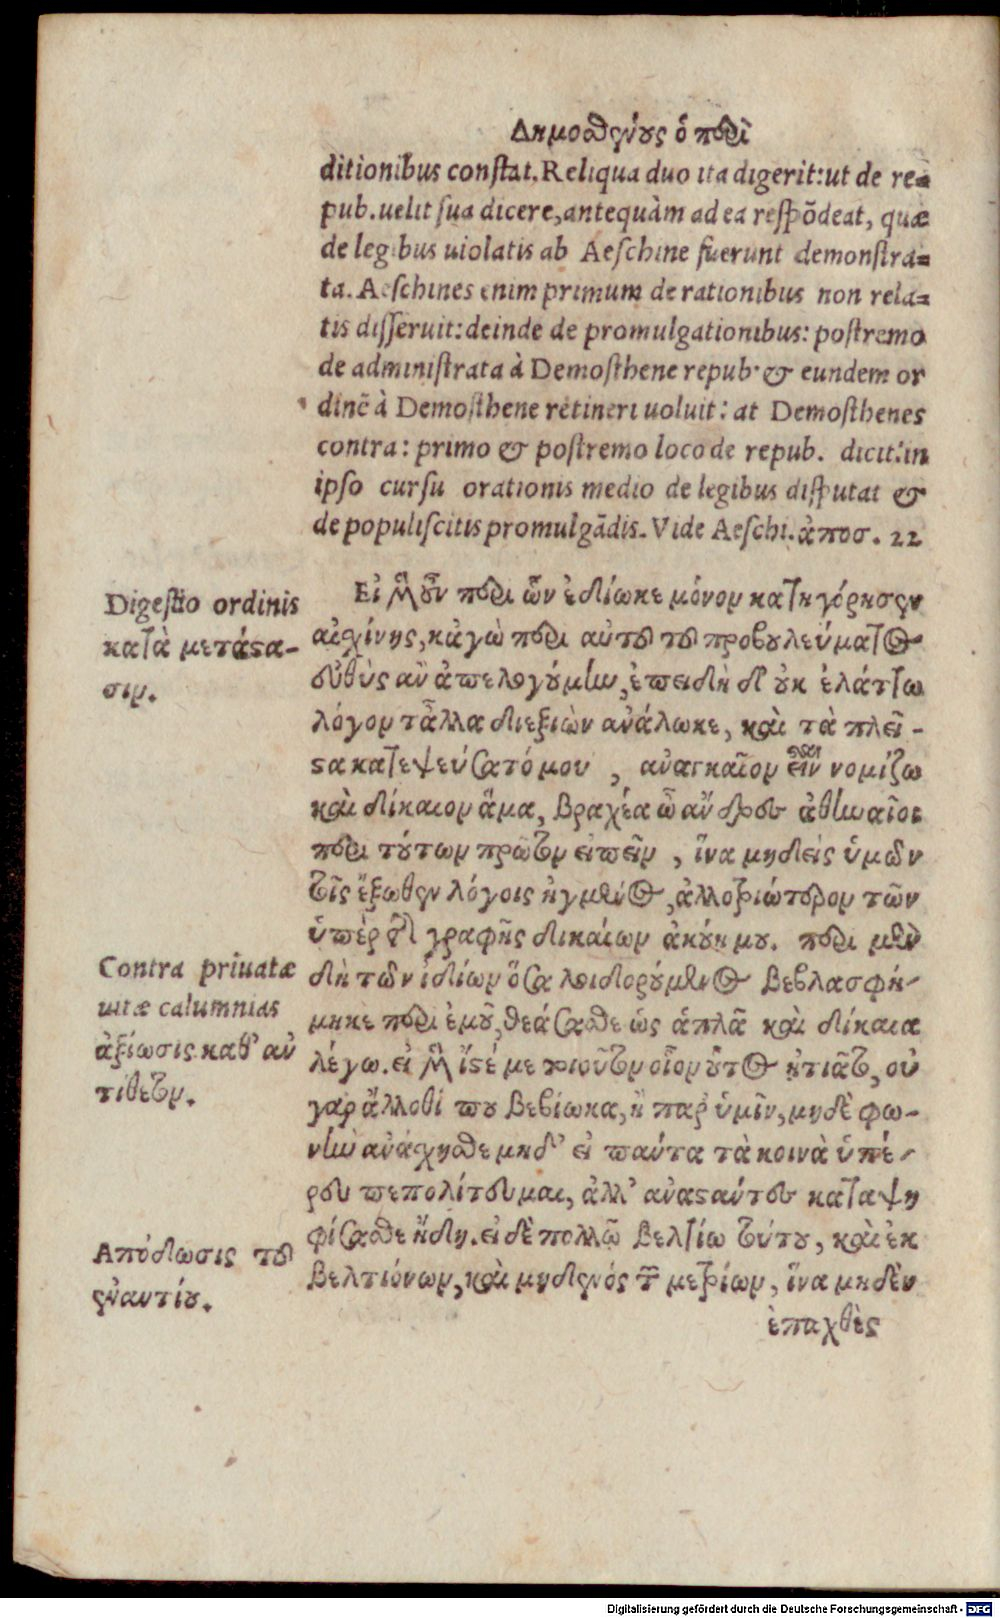 Δημοσθένους ὁ περὶ
ditionibus constat. Reliqua duo ita digerit: ut de re=
pub. uelit sua dicere, antequàm ad ea respōdeat, quæ
de legibus uiolatis ab Aeschine fuerunt demonstra=
ta. Aeschines enim primum de rationibus non rela=
tis disseruit: deinde de promulgationibus: postremo
de administrata à Demosthene repub. & eundem or
dinē à Demosthene retineri uoluit: at Demosthenes
contra: primo & postremo loco de repub. dicit: in
ipso cursu orationis medio de legibus disputat &
de populiscitis promulgādis. Vide Aeschi. ἀποσ. 22
Digestio ordinis
κατὰ μετάστα-
σιν.
Εἰ μὲν οὖν περὶ ὧν ἐδίωκε μόνον κατηγόρησεν
αἰσχίνης, κἀγὼ περὶ αὐτοῦ τοῦ προβουλεύματος
εὐθὺς ἂν ἀπελογούμην, ἐπειδὴ δ' οὐκ ἐλάττω
λόγον τἆλλα διεξιὼν ἀνάλωκε, καὶ τὰ πλεῖ-
στα κατεψεύσατό μου, ἀναγκαῖον εἶναι νομίζω
καὶ δίκαιον ἅμα, βραχέα ὦ ἄνδρες ἀθηναῖοι
περὶ τούτων πρῶτον εἰπεῖν, ἵνα μηδεὶς ὑμῶν
τοῖς ἔξωθεν λόγοις ἠγμένος, ἀλλοτριώτερον τῶν
ὑπὲρ τῆς γραφῆς δικαίων ἀκούῃ μου. περὶ μὲν
Contra priuatæ
uitæ calumnias
ἀξίωσις καθ' ἀν
τίθετον.
δὴ τῶν ἰδίων ὅσα λοιδορούμενος βεβλασφή-
μηκε περὶ ἐμοῦ, θεάσασθε ὡς ἁπλᾶ καὶ δίκαια
λέγω. εἰ μὲν ἴστέ με τοιοῦτον οἷον οὗτος ᾐτιᾶτο, οὐ
γαρ ἄλλοθί που βεβίωκα, ἢ παρ' ὑμῖν, μηδὲ φω-
νὴν ἀνάσχησθε μηδ' εἰ πάντα τὰ κοινὰ ὑπέ-
ρευ πεπολίτευμαι, ἀλλ' ἀναστάντες καταψη
φίσασθε ἤδη. εἰ δὲ πολλῷ βελτίω τούτου, καὶ ἐκ
Απόδωσις τοῦ
ἐναντίου.
βελτιόνων, καὶ μηδενός τῶν μετρίων, ἵνα μηδὲν
ἐπαχθὲς
Digitalisierung gefördert durch die Deutsche Forschungsgemeinschaft - DFG